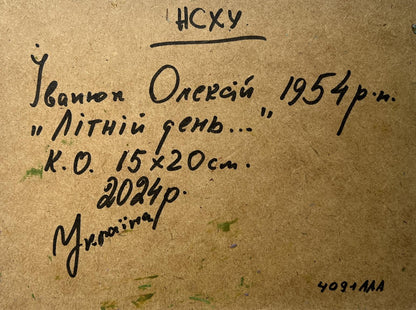 НСХУ
Іванюк Олексій 1954р.н.
"Літній день..."
К.О. 15х20см.
2024р.
Україна
409+ААА